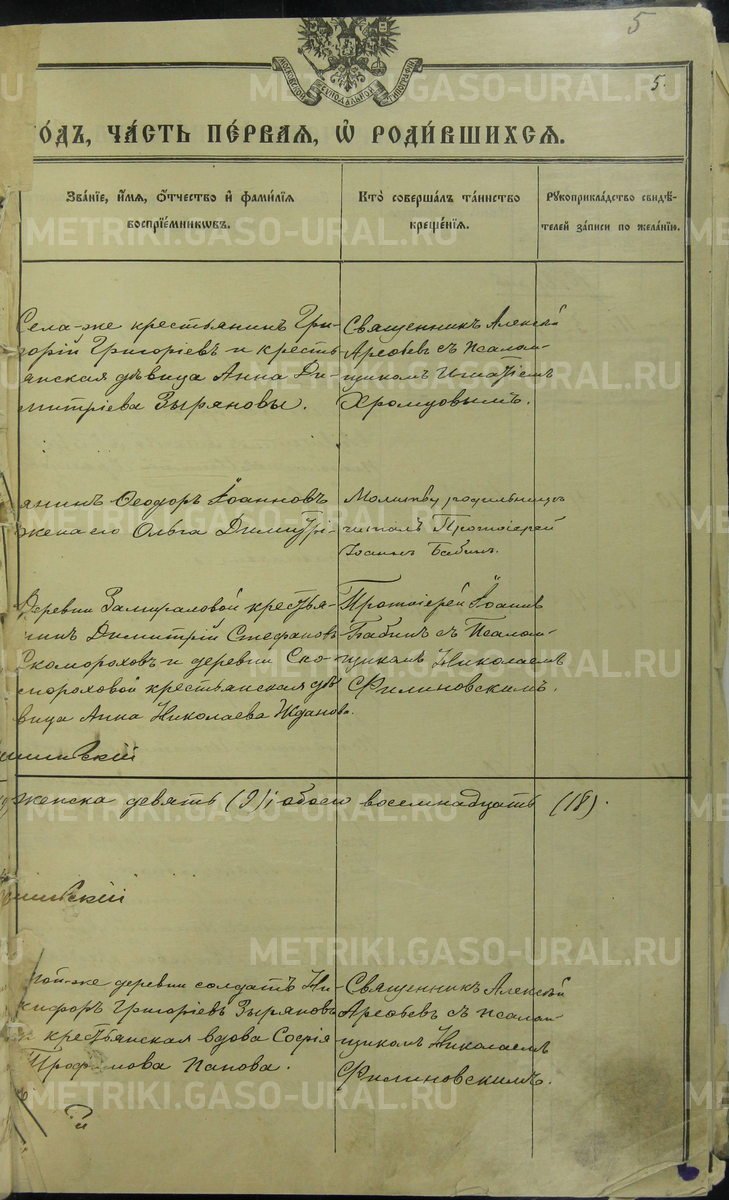 5
5.
МОСКОВСКОЙ СѴНОДАЛЬНОЙ ТИПОГРАФІИ
ГОДЪ, ЧА́СТЬ ПЕ́РВАЯ, Ѡ РОДИ́ВШИХСЯ.
Зва́нїе, и́мя, ѻ҆́тчество и҆ фами́лїя воспрїе́мникѡвъ.
Кто̀ соверша́лъ та́инство креще́нїя.
Рꙋкоприкла́дство свидѣ́телей за́писи по жела́нїю.
Села-же крестьянинъ Гри-
горій Григоріевъ и кресть-
янская дѣвица Анна Ди-
митріева Зыряновы.
Священникъ Алексѣй
Арефьевъ съ псалом-
щикомъ Игнатіемъ
Хромцовымъ.
янинъ Ѳеодоръ Іоанновъ
жена его Ольга Димитрі-
Молитву родильницѣ
читалъ Протоіерей
Іоаннъ Бабинъ.
Деревни Замираловой крестья-
нинъ Димитрій Стефановъ
Скомороховъ и деревни Ско-
мороховой крестьянская дѣ-
вица Анна Николаева Жданова.
Протоіерей Іоаннъ
Бабинъ съ Псалом-
щикомъ Николаемъ
Филиновскимъ.
женска девять (9) и обоего восемнадцать (18).
той-же деревни солдатъ Ни-
кифоръ Григоріевъ Зыряновъ
и крестьянская вдова Софія
Трофимова Панова.
Священникъ Алексѣй
Арефьевъ съ псалом-
щикомъ Николаемъ
Филиновскимъ.
METRIKI.GASO-URAL.RU